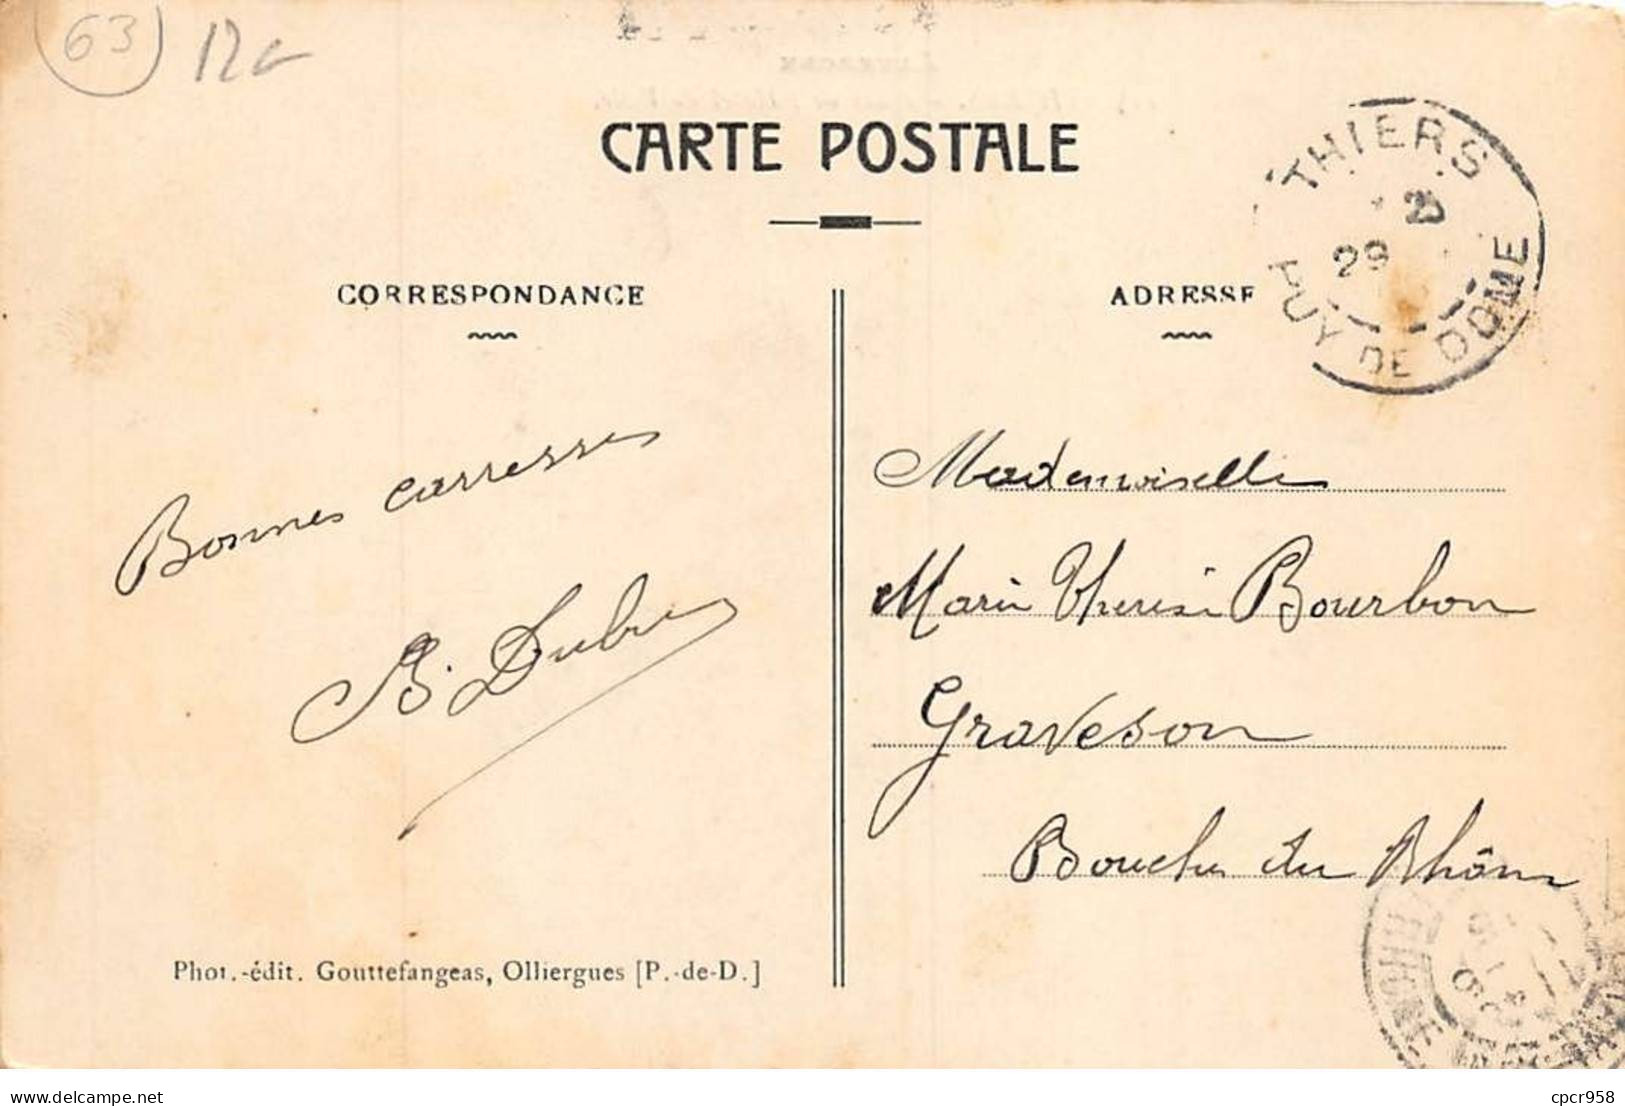 63
12€
CARTE POSTALE
THIERS
29
PUY DE DOME
CORRESPONDANCE
ADRESSE
Bonnes carresses
Mademoiselle
Marie Thérèse Bourbon
Graveson
Bouches du Rhône
Phot.-édit. Gouttefangeas, Olliergues [P.-de-D.]
delcampe.net
cpcr958